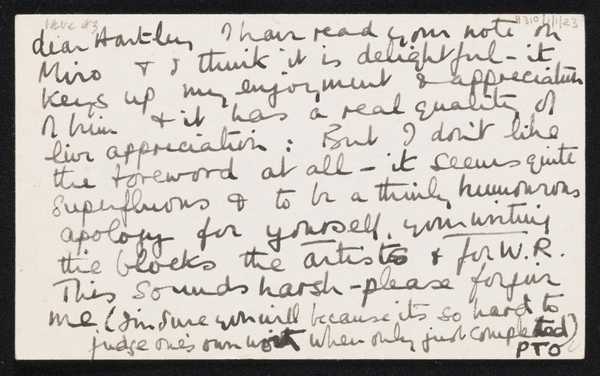 8310/1/1/23
dear Hartley I have read your note on
Miro & I think it is delightful - it
keys up my enjoyment & appreciation
of him & it has a real quality of
live appreciation: But I don't like
the foreword at all - it seems quite
superfluous & to be a thinly humourous
apology for yourself, your writing
the blocks the artists & for W.R.
This sounds harsh - please forgive
me. (I'm sure you will because its so hard to
judge one's own work when only just completed)
PTO